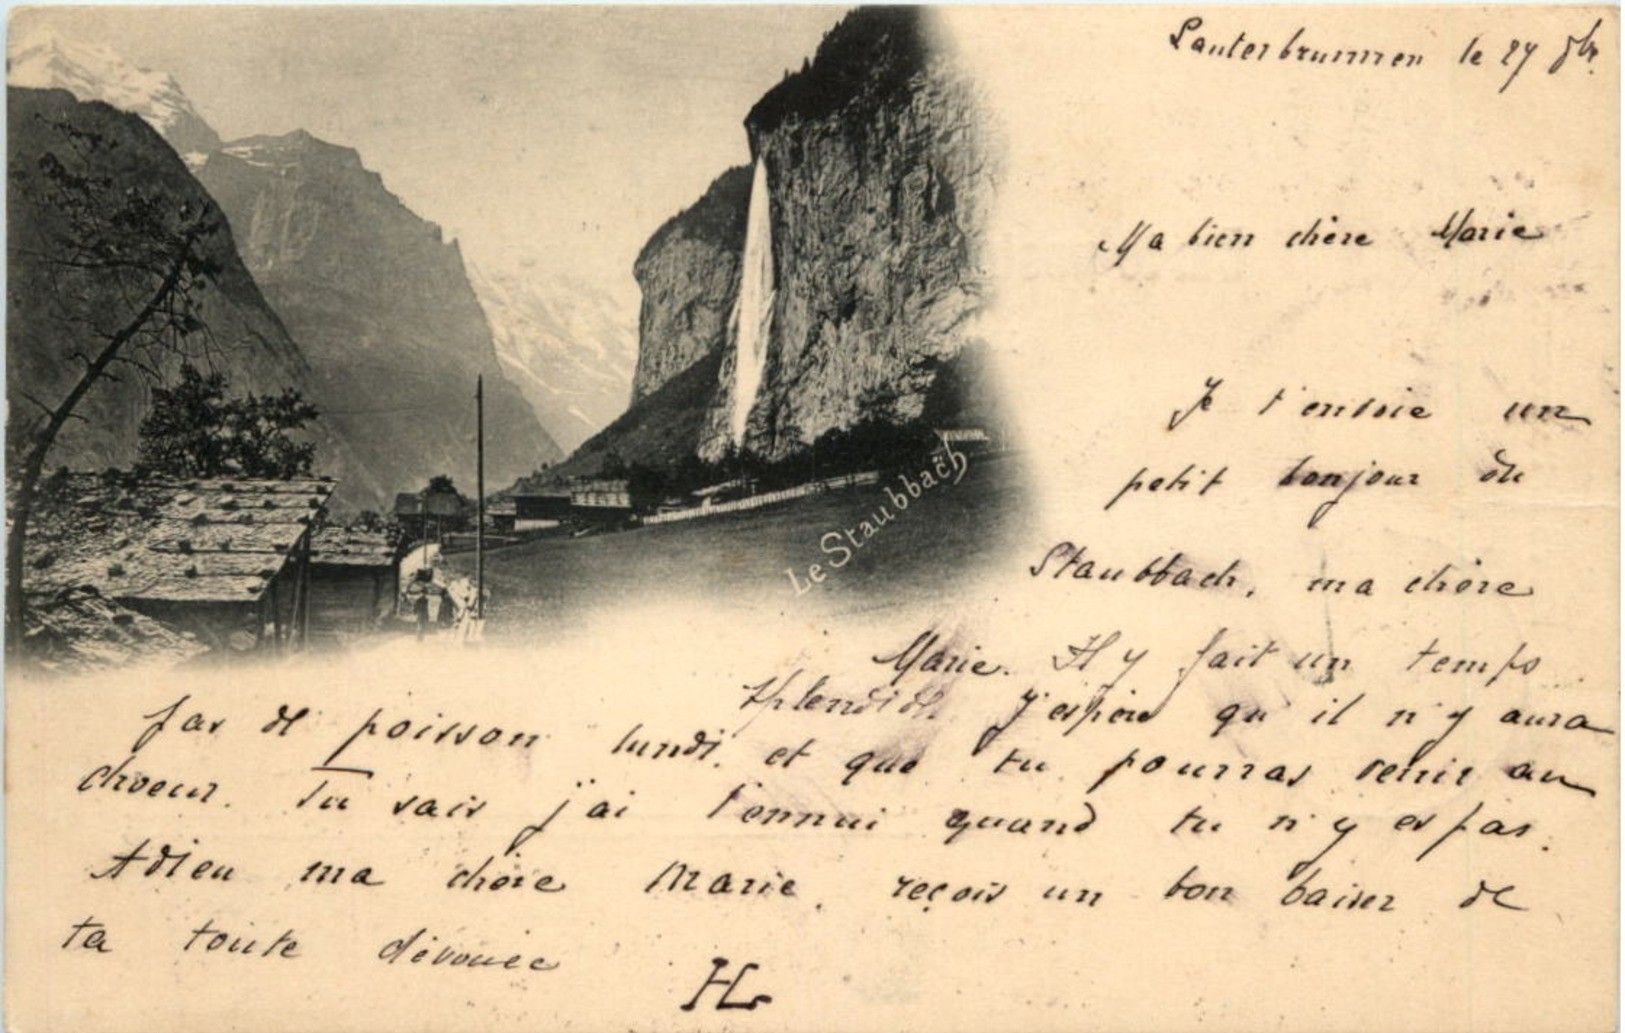 Lauterbrunnen le 27
Ma bien chère Marie
Je t'envoie un
petit bonjour du
Staubbach, ma chère
Marie. Il y fait un temps
splendide. J'espère qu'il n'y aura
pas de poisson lundi, et que tu pourras venir au
choeur. Tu sais j'ai l'ennui quand tu n'y es pas.
Adieu ma chère Marie, reçois un bon baiser de
ta toute dévouée
H
Le Staubbach